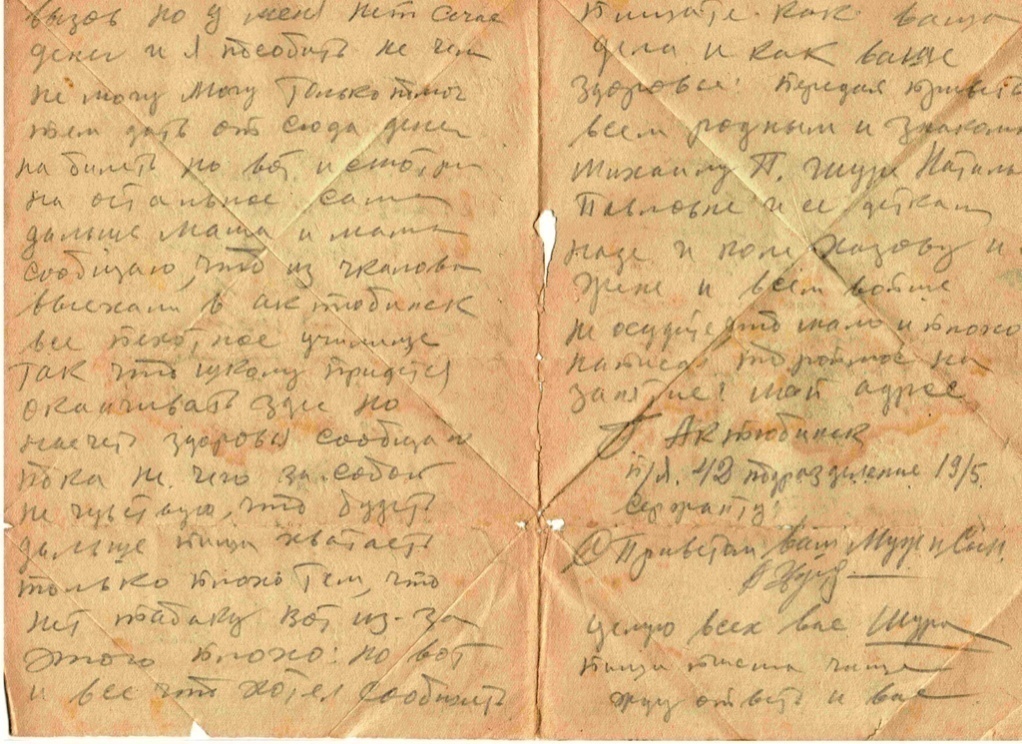 вызов но у меня нет сечас
денег и я пособить не чем
не могу могу только
тем дать от сюда денег
на билет но вот и смотри
на остальное сама
дальше Маша и мама
сообщаю, что из чкалова
выехали в актюбинск
все пехотное училище
так что школу придется
оканчивать здес но
насчет здоровья сообщаю
пока не чего за собой
не чувствую, что будет
дальше пищи хватает
только плохо тем, что
нет табаку вот из-за
этого плохо: но вот
и все что хотел сообщить
пишите как ваши
дела и как ваше
здоровье! передай привет
всем родным и знакомы
Михаилу П. Шуре Наталь
Павловне и ее деткам
наде и коле и
Жене и всем вобще
не осудите что мало и плохо
написал на
занятие! мой адрес
г Актюбинск
п/я. 42 подразделение 19/5
Сержанту:
С Приветом ваш Муж и Сын
целую всех вас Шура
пиши письма чаще
жду ответ и вас